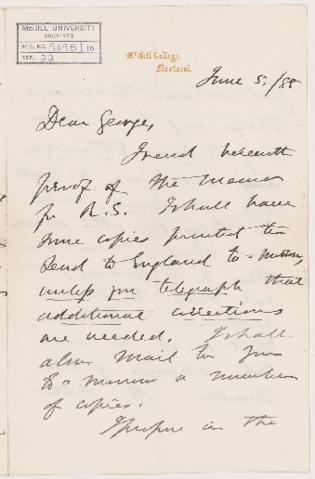 McGILL UNIVERSITY
ARCHIVES
ACC. NO. 909B/10
REF. 22
McGill College,
Montreal.
June 5,/88
Dear George,
I send herewith
proof of the Memoir
for R.S. I shall have
some copies printed to
send to England to-morrow,
unless you telegraph that
additional corrections
are needed. I shall
also mail to you
to-morrow a number
of copies.
I propose in the